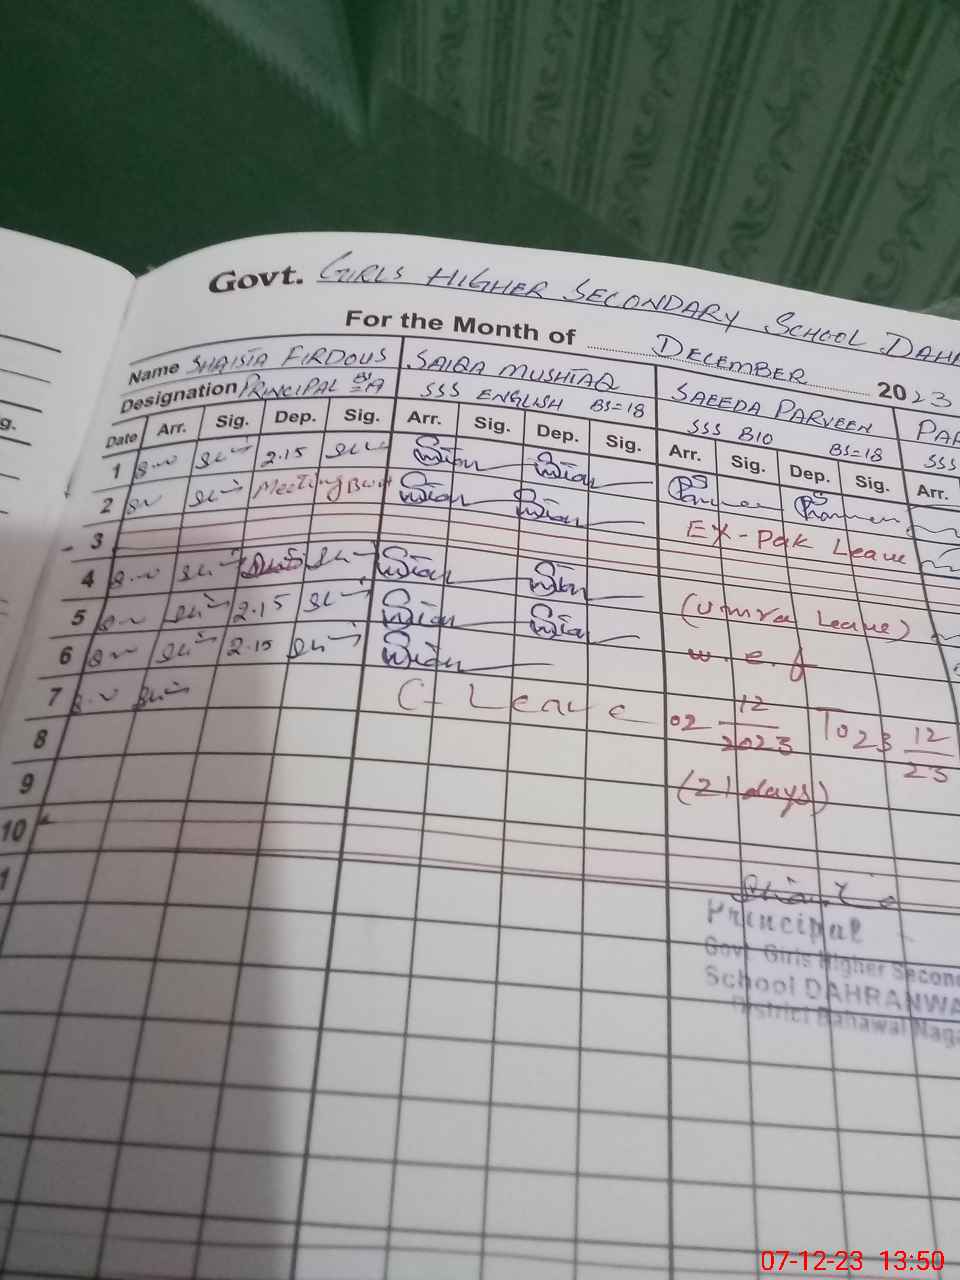 Govt. GIRLS HIGHER SECONDARY SCHOOL DAHR
For the Month of DECEMBER 2023
Name SHAISTA FIRDOUS SAIRA MUSHTAQ SAEEDA PARVEEN PAR
Designation PRINCIPAL SSS ENGLISH BS=18 SSS BIO BS=18 SSS
Date Arr. Sig. Dep. Sig. Arr. Sig. Dep. Sig. Arr. Sig. Dep. Sig. Arr.
g.
1 2.15
2 Meeting
3 EX-Pak Leave
4
5 2.15 (Umra Leave)
6 2.15 w.e.f
7 C-Leave 02 12/2023 To 23 12/23
8
9 (21 days)
10
1
Principal
Govt. Girls Higher Second
School DAHRANWA
District Bahawal Naga
07-12-23 13:50